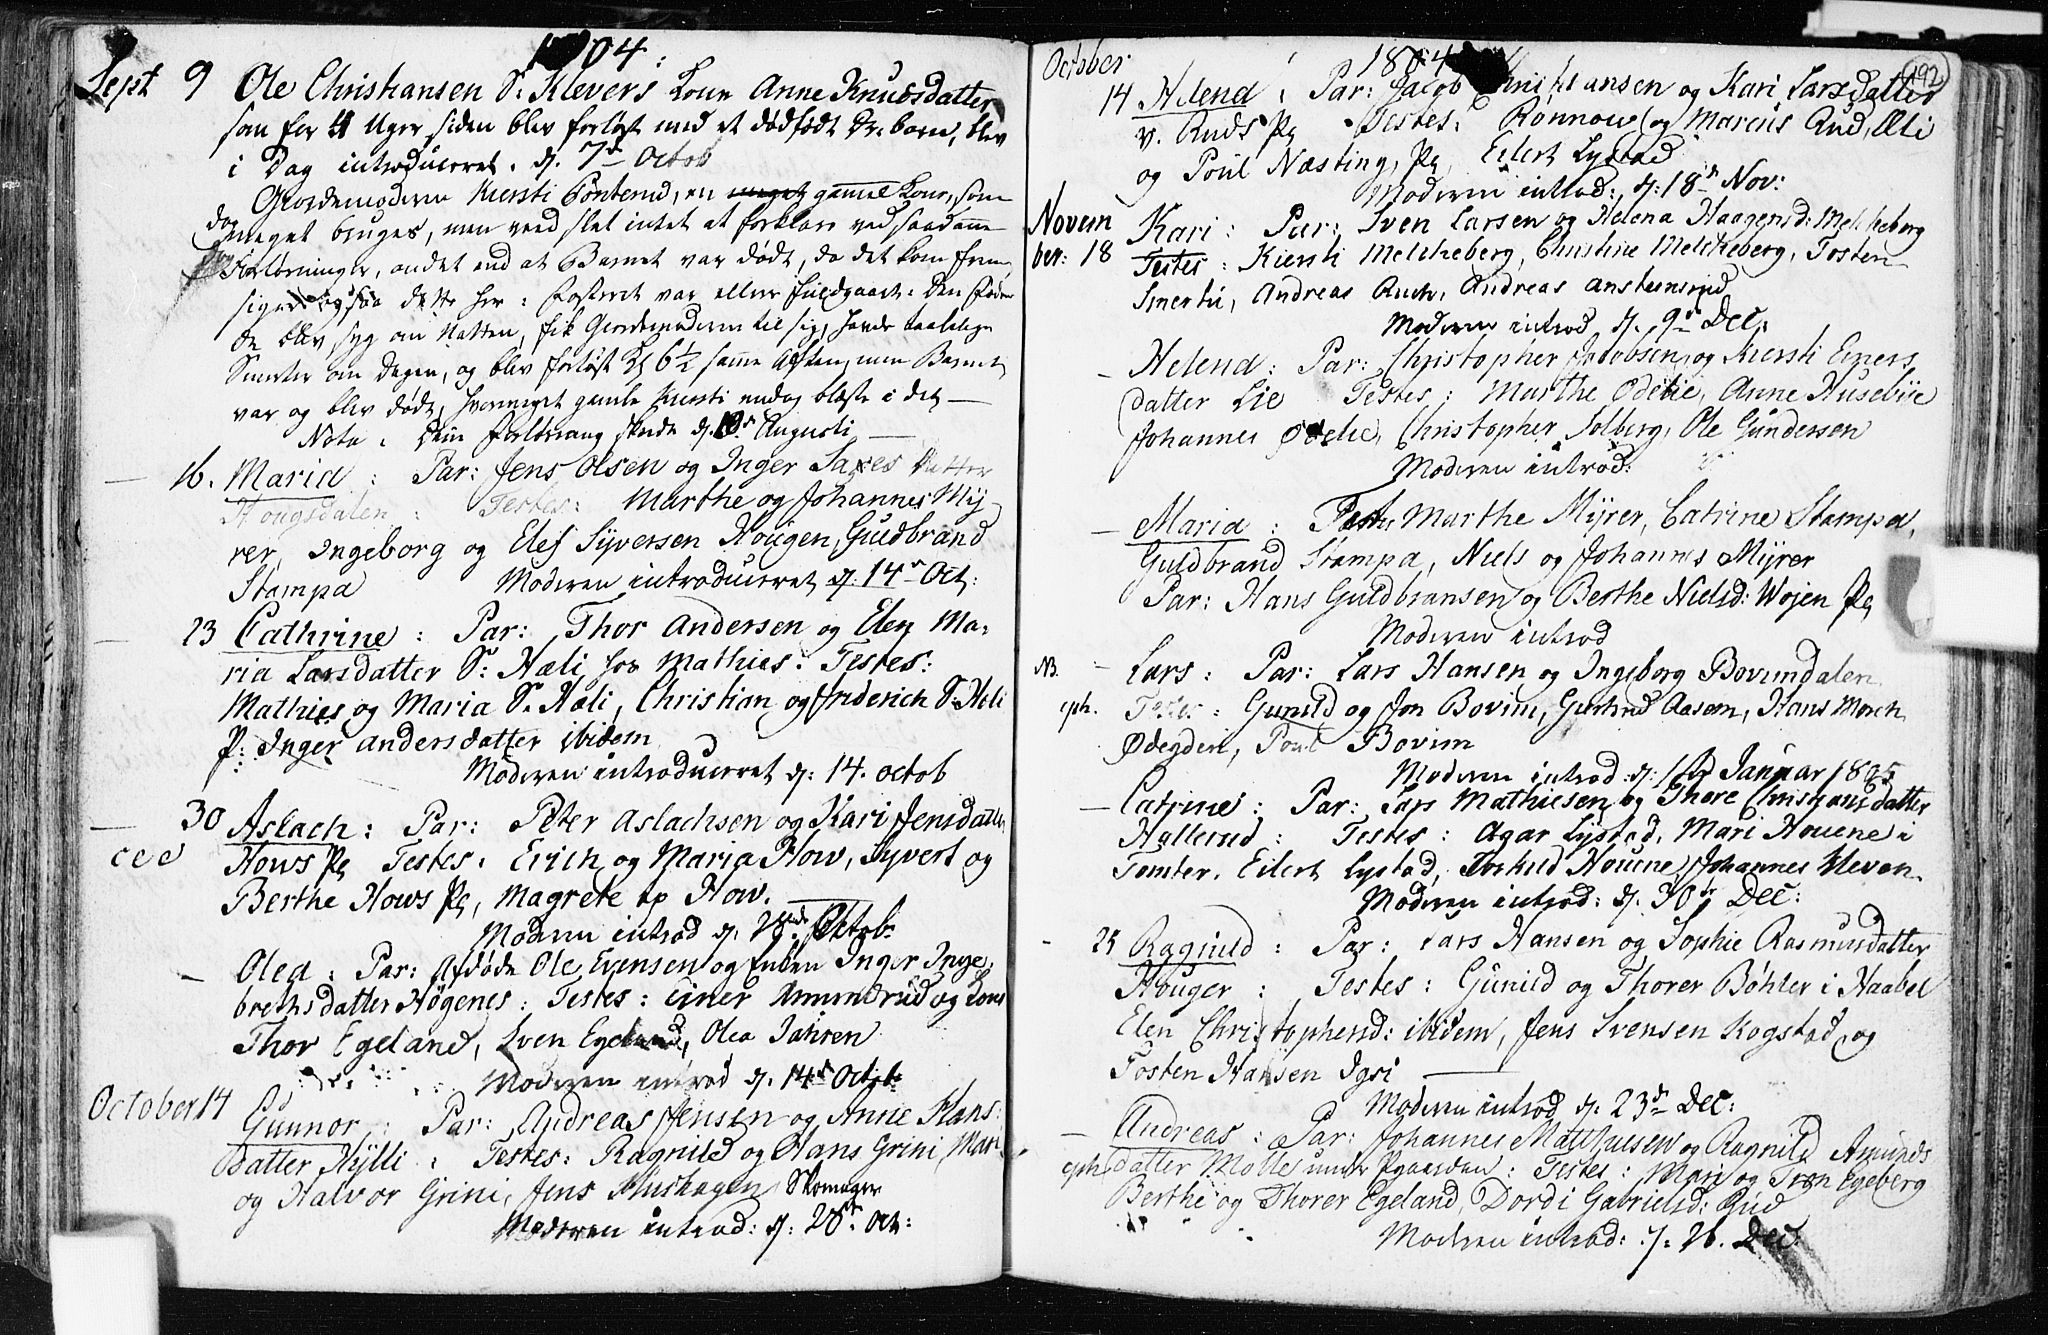 1804.
Sept 9 Ole Christiansen S. Klevers Kone Anne Knudsdatter
som for 4 Uger siden blev forløst med et dødfødt Dr. barn, blev
i Dag introduceret. d. 7de Octob
Giordemoderen Kiersti Ponterud, en meget gammel Kone, som
dog meget bruges, men veed slet intet at forklare ved saadanne
Forløsninger, andet end at Barnet var dødt, da det kom frem,
siger ogsaa dette her: Fosteret var ellers fuldgaaet. Den
de blev syg om Natten, fik Giordemoderen til sig, havde taalelige
Smerter om Dagen, og blev forløst Kl 6 1/2 samme Aften, men Barnet
var og blev dødt, hvormeget gamle Kiersti endog blæste i det —
Nota. denne Forløsning skede d. Augusti —
— 16. Maria: Par: Jens Olsen og Inger Datter
Hougsdalen: Testes: Marthe og Johannes Mÿ-
rer, Ingeborg og Elef Syversen Hougen, Guldbrand
Stampa Moderen introduceret d. 14 Oct:
— 23 Cathrine: Par: Thor Andersen og Elen Ma-
ria Larsdatter S. Hæli hos Mathies: Testes:
Mathies og Maria S. Hæli, Christian og Friderich S. Hæli
P: Inger Andersdatter ibidem
Moderen introduceret d: 14. octob
— 30 Aslach: Par: Peter Aslachsen og Kari Jensdatter
Hows Pg Testes: Erich og Maria How, Syvert og
Berthe Hows Pg, Magrete op How.
Moderen introd d. 28de Octob.
— Olea: Par: afdøde Ole Evensen og Enken Inger Inge-
brethsdatter Høgenes: Testes: Einer Ammundrud og Kone
Thor Egeland, Sven Egeland, Olea Jahren
Moderen introd d. 14de Octob:
October 14 Gunnor: Par: Andreas Jensen og Anne Hans-
datter Hÿlli: Testes: Ragnild og Hans Grini, Mari
og Halvor Grini, Jens Skomager
Moderen introd: d: 28de Oct:
October 1804 192
14 Helena: Par: Jacob Christiansen og Kari Larsdatter
v. Ruds Pg Testes: Rønnow og Marcus Rud, Eli
og Poul Næsting, Pg, Eilert Lystad
Moderen introd: d: 18de Nov:
Novem Kari: Par: Iven Larsen og Helena Haagensd: Melcheberg
ber: 18 Testes: Kiersti Melcheberg, Christine Melcheberg, Tosten
Smertu, Andreas Ruch, Andreas Anstensrud
Moderen introd d. 9de Dec:
— Helena: Par: Christopher Jacobsen og Kiersti Einers
datter Lie Testes: Marthe Ødelie, Anne Husebÿe
Johannes Ødelie, Christopher Solberg, Ole Gundersen
Moderen introd:
— Maria: Testes Marthe Mÿrer, Catrine Stampa,
Guldbrand Stampa, Niels og Johannes Mÿrer
Par: Hans Guldbransen og Berthe Nielsd: Wojen Pg
Moderen introd
NB. — Lars: Par: Lars Hansen og Ingeborg Bovimdalen
eph. Testes: Gunild og Jon Bovim, Giertrud Aasem, Hans Morch
Ødegden, Poul Bovim
Moderen introd: d: Januar 1805
— Catrine: Par: Lars Mathiesen og Thore Christiansdatter
Hallerud: Testes: Agar Lystad, Mari Houene i
Tomter, Eilert Lystad, Torkild Houene, Johannes Kleven
Moderen introd: d. 30te Dec:
- 25 Ragnild: Par: Lars Hansen og Sophie Rasmusdatter
Houger: Testes: Gunild og Thorer Bøhler i Haabel
Elen Christophersd: ibidem, Jens Svensen Rogstad, og
Tosten Hansen Igsi —
Moderen introd d. 23de Dec:
— Andreas: Par: Johannes Matthiesen og Ragnild Amunds
eph. datter Molle under Pgaarden: Testes: Mari og Iven Egeberg
Berthe og Thorer Egeland, Dordi Gabrielsd: Rud
Moderen introd: d: 26. Dec.